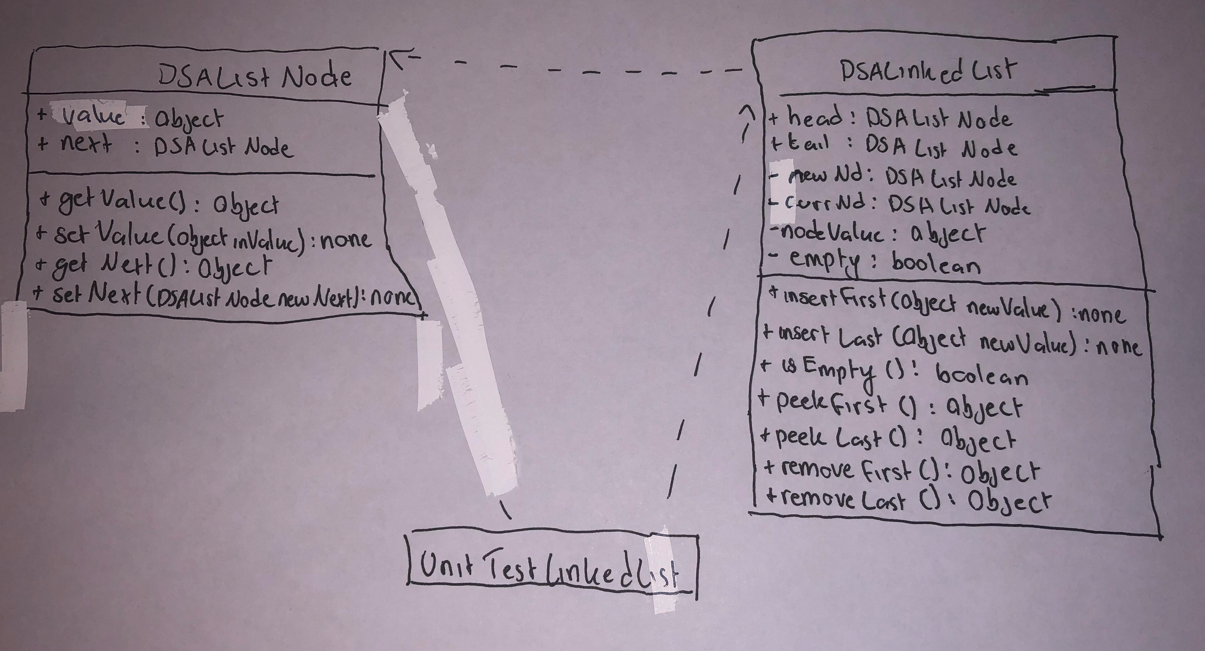 DSAListNode
+ value : Object
+ next : DSAListNode
+ getValue() : Object
+ setValue(Object inValue) : none
+ getNext() : Object
+ setNext(DSAListNode newNext) : none
DSALinkedList
+ head : DSAListNode
+ tail : DSAListNode
- newNd : DSAListNode
- currNd : DSAListNode
- nodeValue : Object
- empty : boolean
+ insertFirst(Object newValue) : none
+ insertLast(Object newValue) : none
+ isEmpty() : boolean
+ peekFirst() : Object
+ peekLast() : Object
+ removeFirst() : Object
+ removeLast() : Object
UnitTestLinkedList